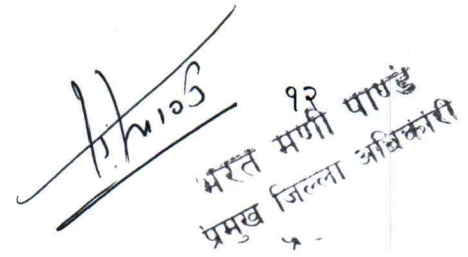 १२
भरत मणी पाण्डे
प्रमुख जिल्ला अधिकारी